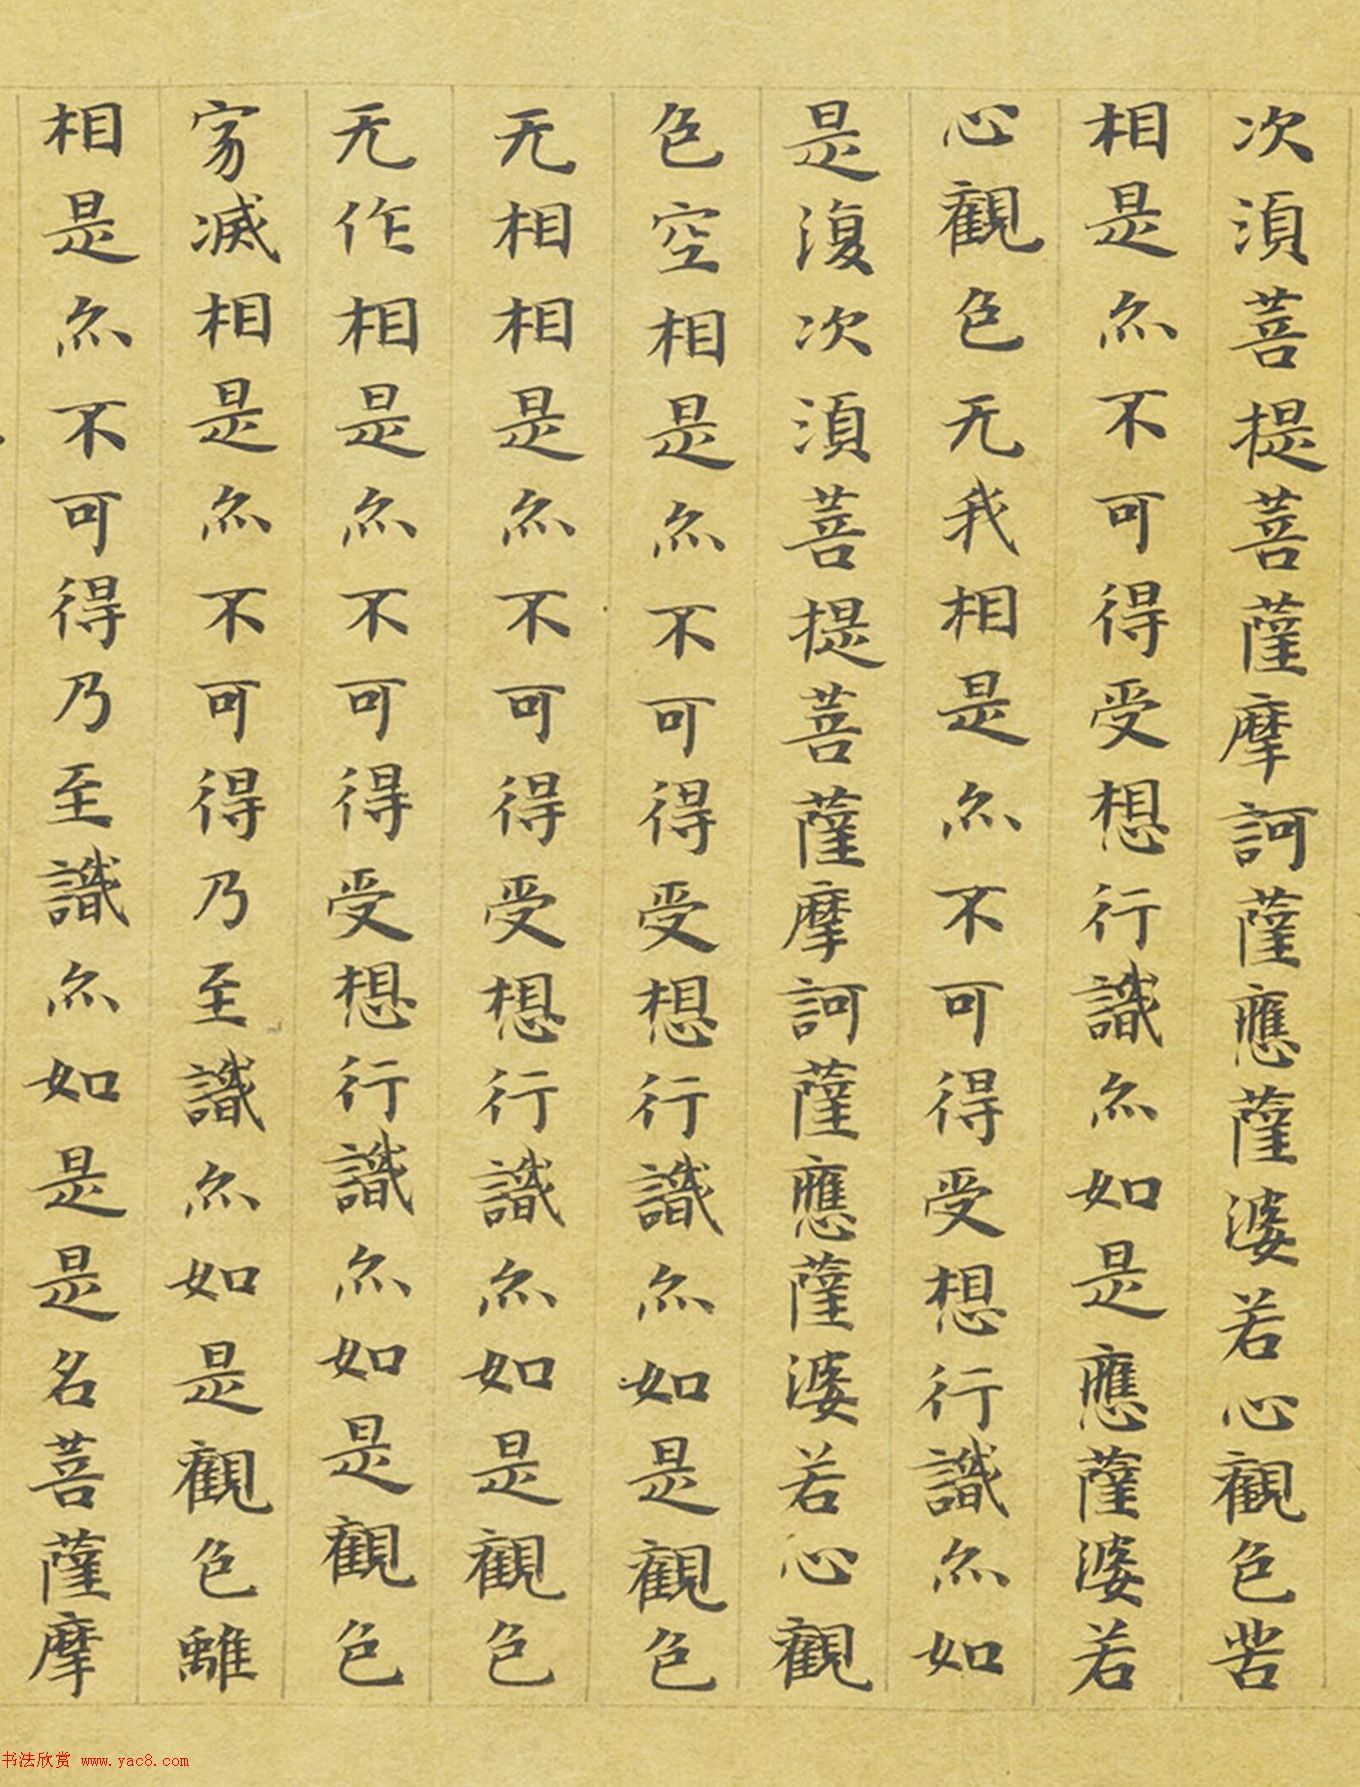 次湏菩提菩薩摩訶薩應薩婆若心觀色苦
相是亦不可得受想行識亦如是應薩婆若
心觀色无我相是亦不可得受想行識亦如
是復次湏菩提菩薩摩訶薩應薩婆若心觀
色空相是亦不可得受想行識亦如是觀色
无相相是亦不可得受想行識亦如是觀色
无作相是亦不可得受想行識亦如是觀色
㝱滅相是亦不可得乃至識亦如是觀色離
相是亦不可得乃至識亦如是是名菩薩摩
书法欣赏 www.yac8.com